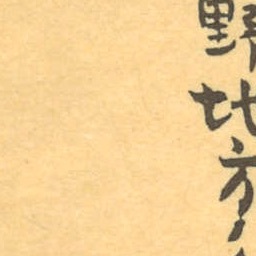 野地方